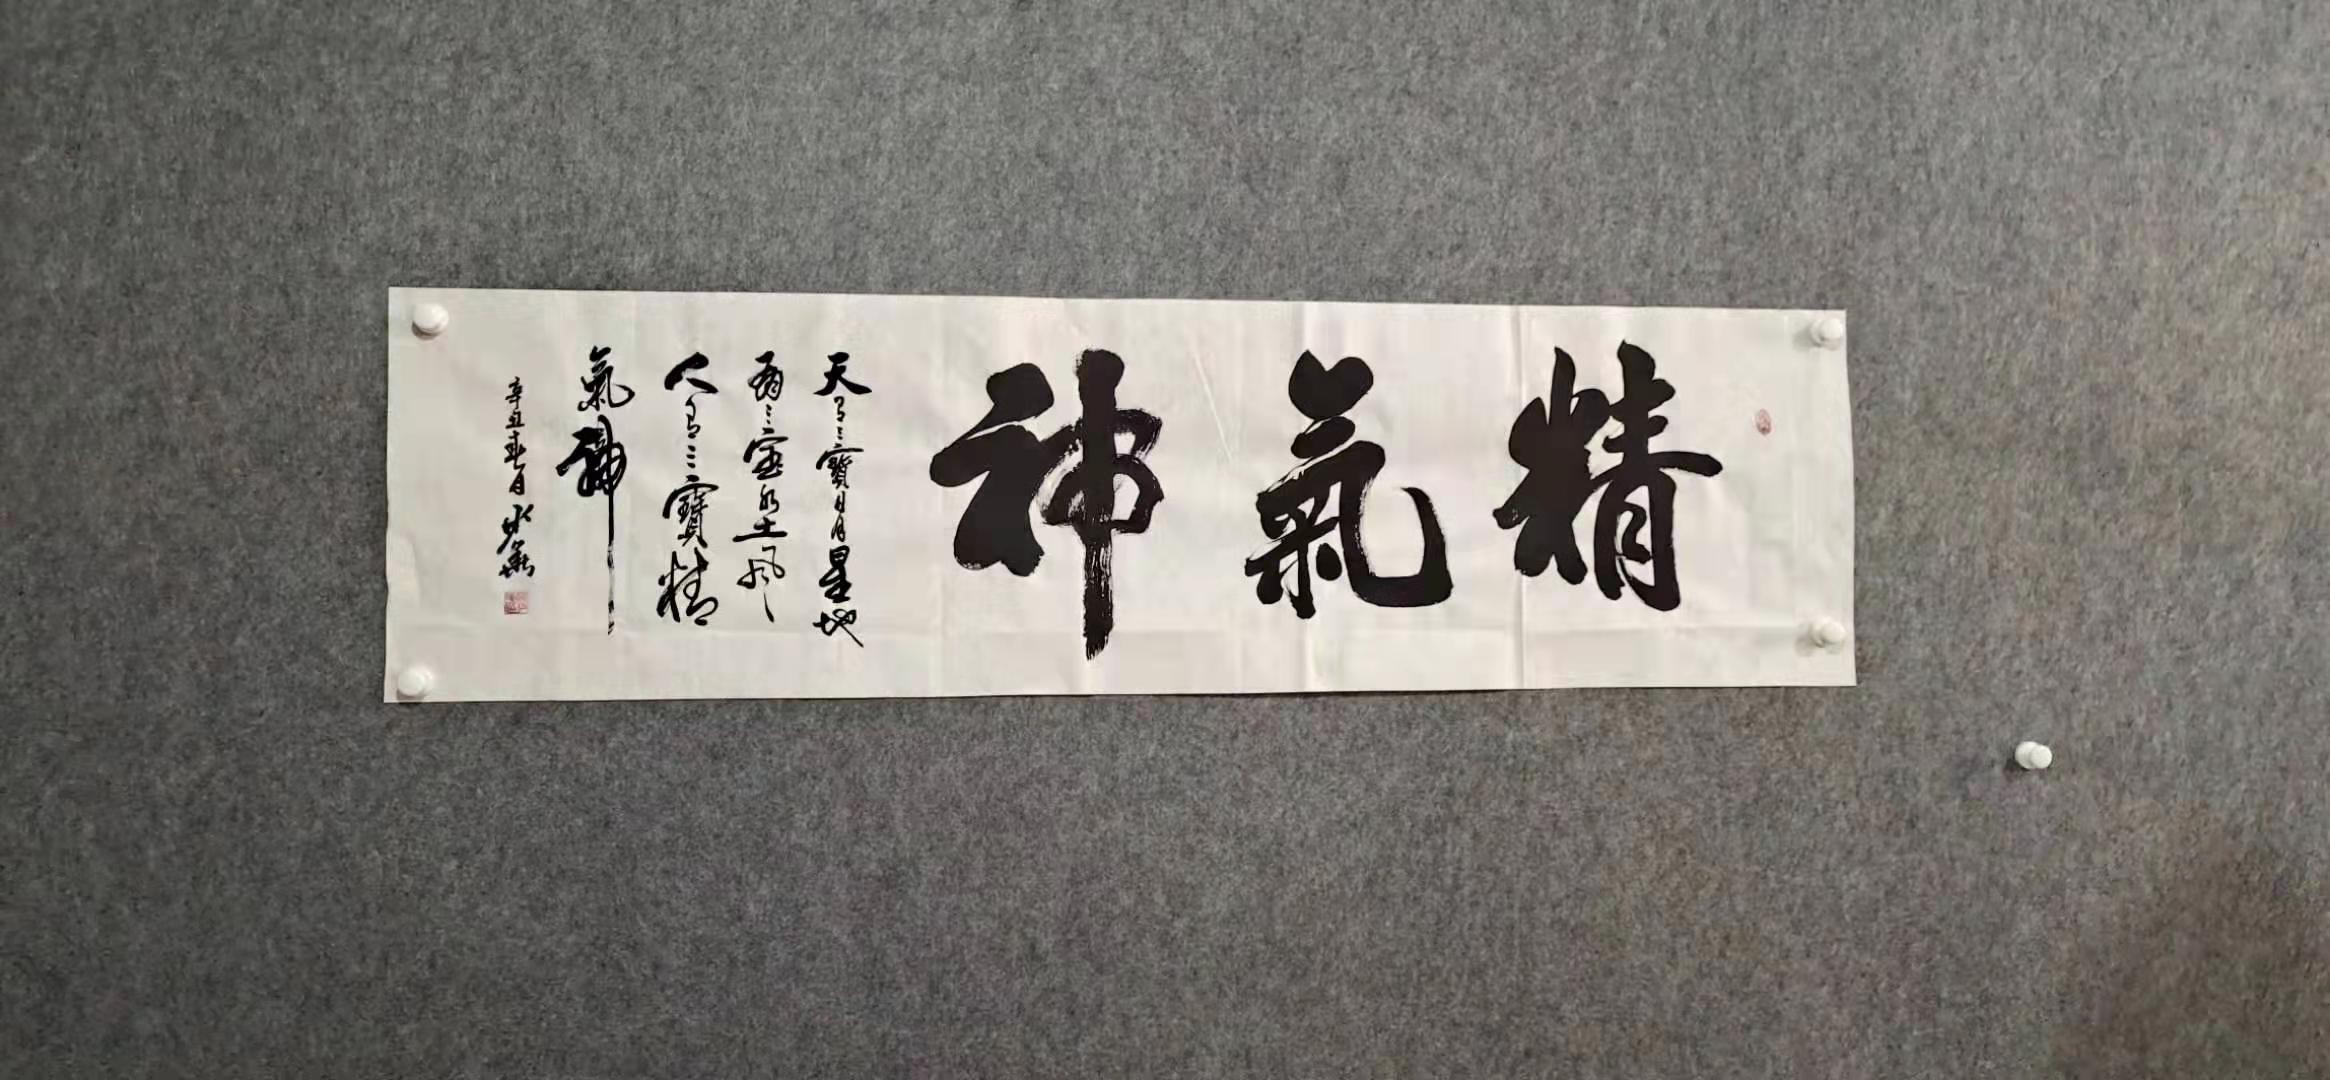 精氣神
天有三寶日月星地
有三宝水土風
人有三寶精
氣神
辛丑春月